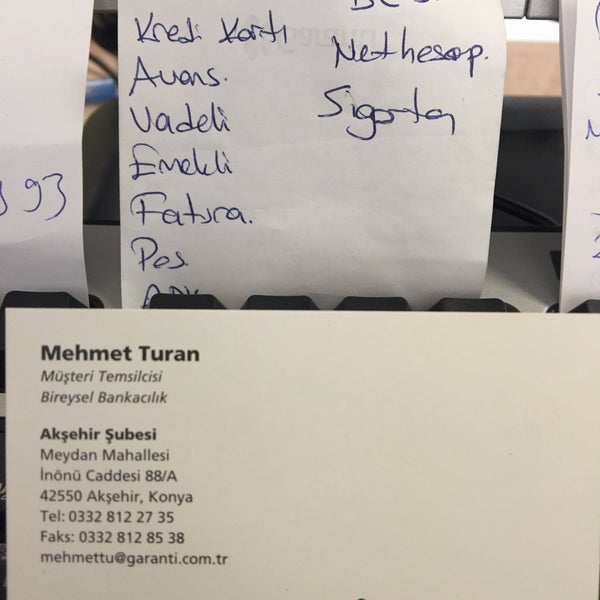 Kredi Kartı
Avans.
Vadeli
Emekli
Fatura.
Pos
Nethesap.
Sigorta
93
Mehmet Turan
Müşteri Temsilcisi
Bireysel Bankacılık
Akşehir Şubesi
Meydan Mahallesi
İnönü Caddesi 88/A
42550 Akşehir, Konya
Tel: 0332 812 27 35
Faks: 0332 812 85 38
mehmettu@garanti.com.tr